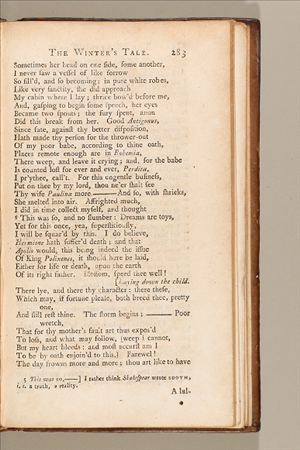 The Winter's Tale. 283
Sometimes her head on one ſide, ſome another,
I never ſaw a veſſel of like ſorrow
So fill'd, and ſo becoming; in pure white robes,
Like very ſanctity, ſhe did approach
My cabin where I lay; thrice bow'd before me,
And, gaſping to begin ſome ſpeech, her eyes
Became two ſpouts; the fury ſpent, anon
Did this break from her. Good Antigonus,
Since fate, againſt thy better diſpoſition,
Hath made thy perſon for the thrower-out
Of my poor babe, according to thine oath,
Places remote enough are in Bohemia,
There weep, and leave it crying; and, for the babe
Is counted loſt for ever and ever, Perdita,
I pr'ythee, call't. For this ungentle buſineſs,
Put on thee by my lord, thou ne'er ſhalt ſee
Thy wife Paulina more.——And ſo, with ſhrieks,
She melted into air. Affrighted much,
I did in time collect myſelf, and thought
5 This was ſo, and no ſlumber: Dreams are toys,
Yet for this once, yea, ſuperſtitiouſly,
I will be ſquar'd by this. I do believe,
Hermione hath ſuffer'd death; and that
Apollo would, this being indeed the iſſue
Of King Polixenes, it ſhould here be laid,
Either for life or death, upon the earth
Of its right father. Bloſſom, ſpeed thee well!
[Laying down the child.
There lye, and there thy character: there theſe,
Which may, if fortune pleaſe, both breed thee, pretty
one,
And ſtill reſt thine. The ſtorm begins;——Poor
wretch,
That for thy mother's fault art thus expos'd
To loſs, and what may follow, (weep I cannot,
But my heart bleeds: and moſt accurſt am I
To be by oath enjoin'd to this.) Farewel!
The day frowns more and more; thou art like to have
5 This was ſo,——] I rather think Shakeſpear wrote SOOTH,
i. e. a truth, a reality.
A lul-